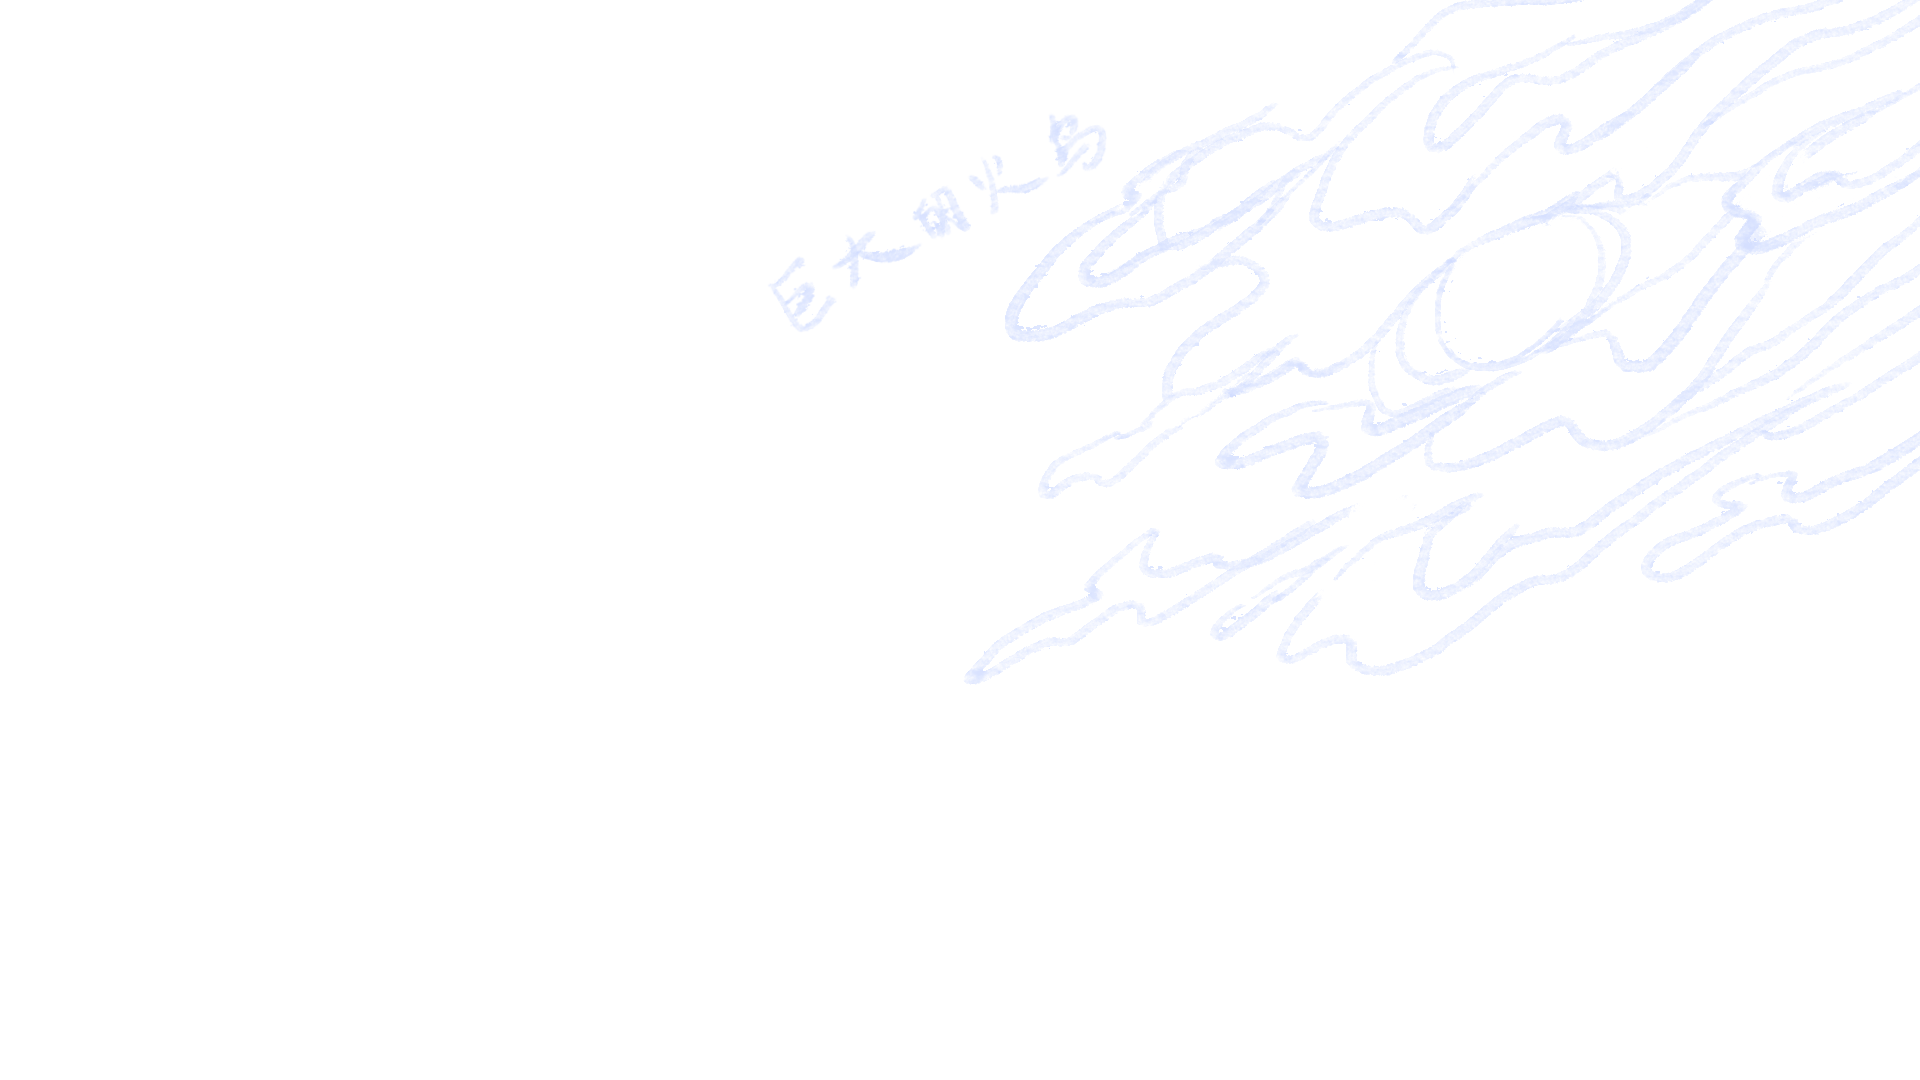 巨大的火鸟